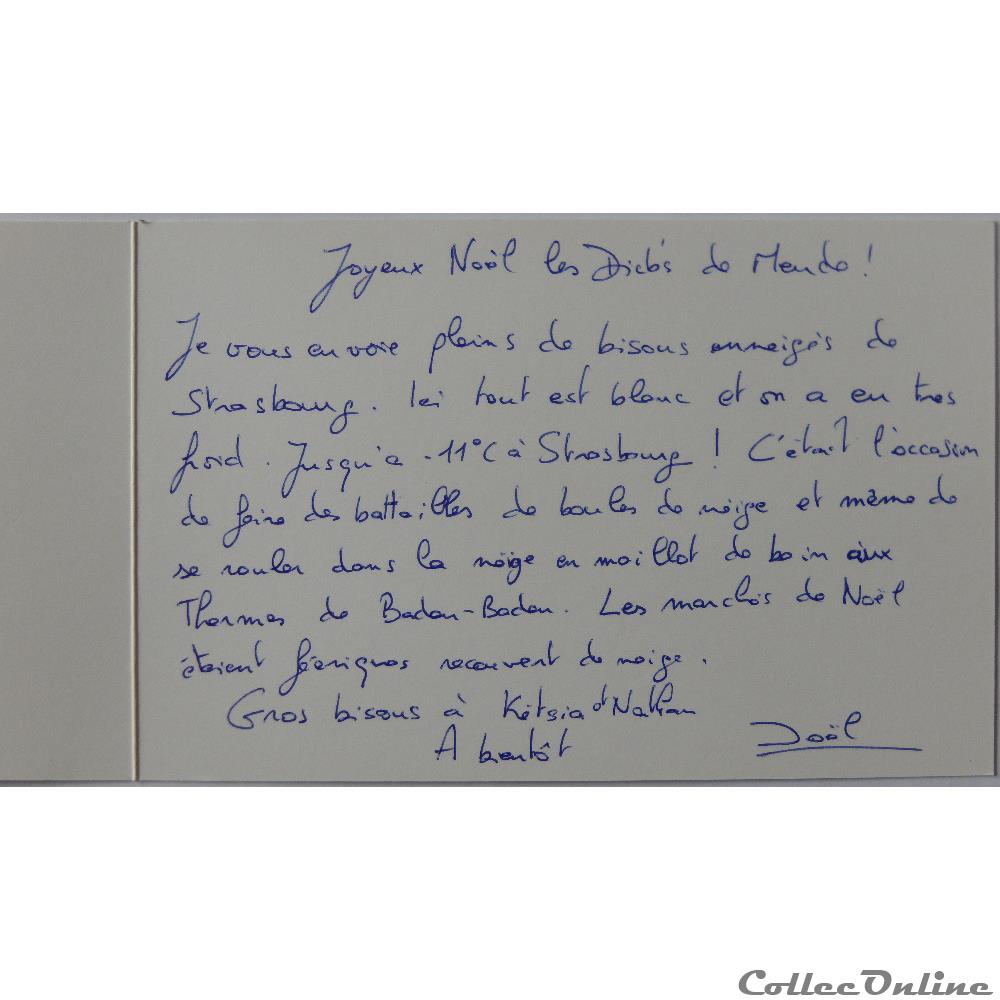 Joyeux Noël les Diebs de Mende !
Je vous envoie pleins de bisous enneigés de
Strasbourg. Ici tout est blanc et on a eu très
froid. Jusqu'a -11°C à Strasbourg ! C'était l'occasion
de faire des battailles de boules de neige et même de
se rouler dans la neige en maillot de bain aux
Thermes de Baden-Baden. Les marchés de Noël
étaient féeriques recouvert de neige.
Gros bisous à Ketsia et Nathan
A bientôt
Joël
CollecOnline